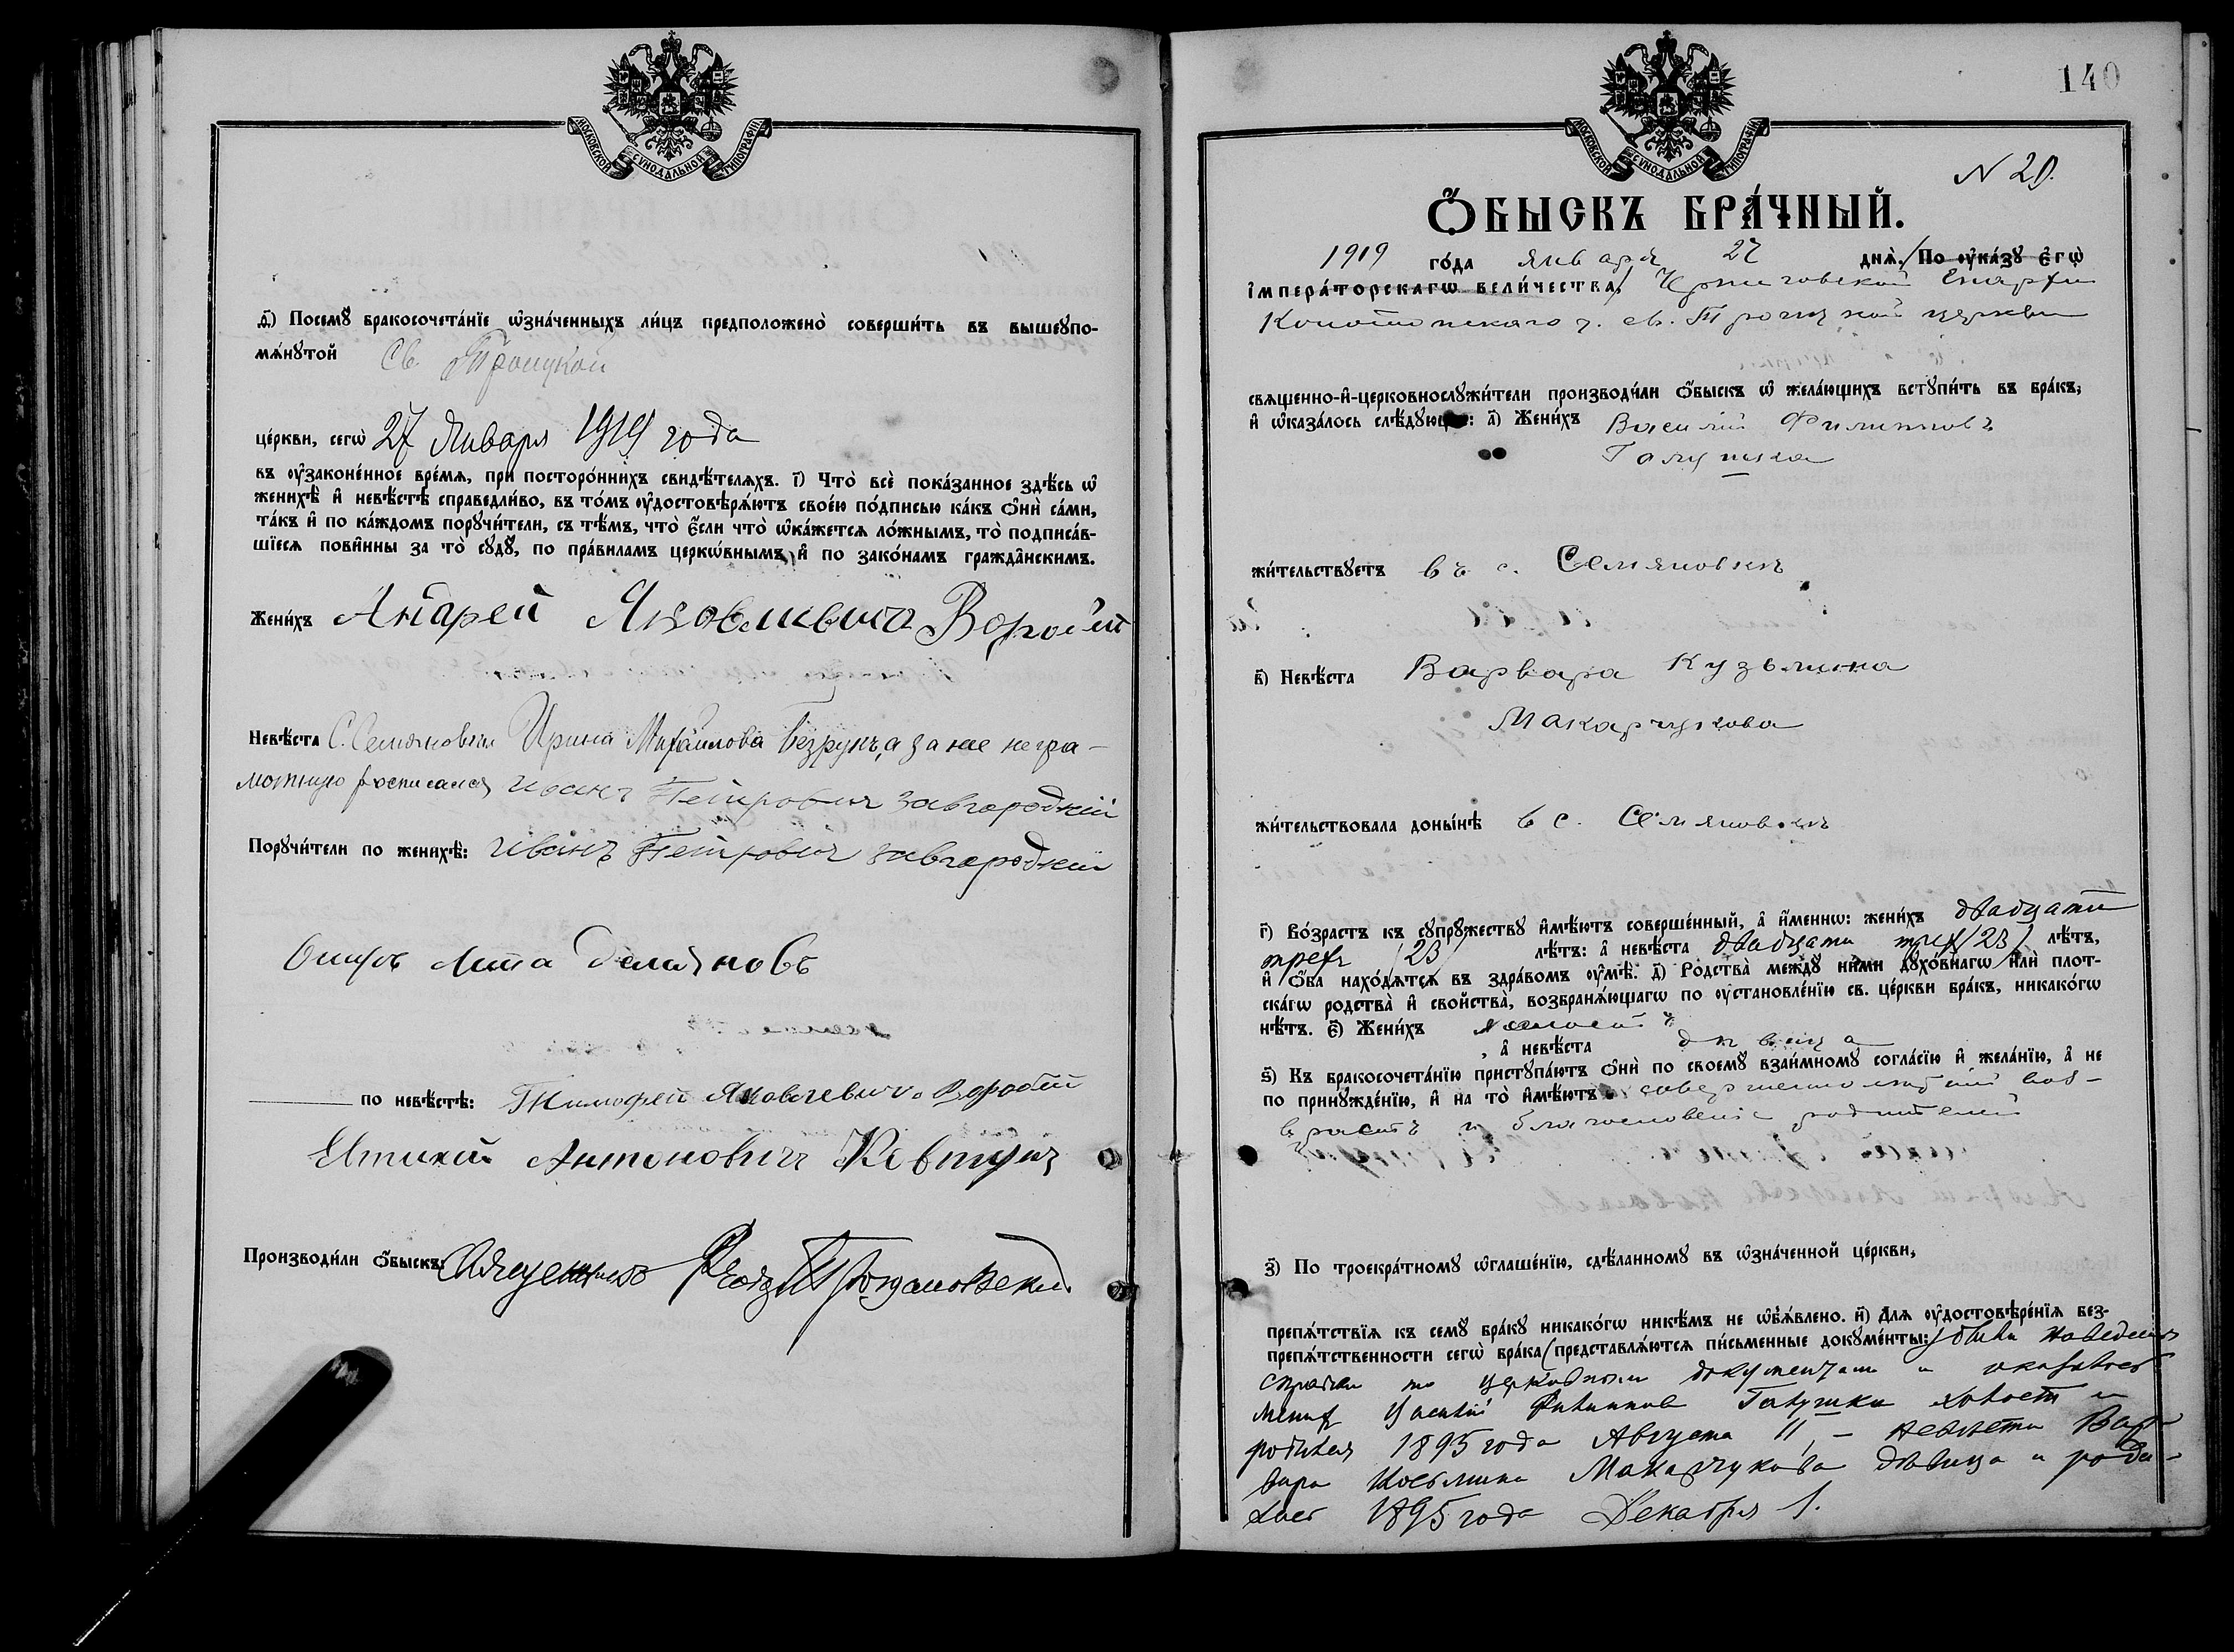 МОСКОВСКОЙ СУНОДАЛЬНОЙ ТИПОГРАФІИ
д҃і) Посемꙋ бракосочета́нїе ѡ҆зна́ченныхъ ли́цъ предположено̀ соверши́ть въ вышеꙋпо-
мѧ́нꙋтой Св. Троицкой
це́ркви, сегѡ̀ 27 Января 1919 года
въ ᲂу҆законе́нное вре́мѧ, при посторо́ннихъ свидѣ́телѧхъ. і҃) Что̀ всѐ пока́занное здѣ́сь ѡ҆
женихѣ̀ и҆ невѣ́стѣ справедли́во, въ то́мъ ᲂу҆достовѣрѧ́ютъ свое́ю по́дписью ка́къ ѻ҆нѝ са́ми,
та́къ и҆ по ка́ждомъ порꙋчи́тели, съ тѣ́мъ, что̀ є҆́сли что̀ ѡ҆ка́жетсѧ ло́жнымъ, то̀ подписа́в-
шїесѧ пови́нны за то̀ сꙋдꙋ̀, по пра́виламъ церкѡ́внымъ, и҆ по зако́намъ гражда̂нскимъ.
Жени́хъ Андрей Яковлевич Воробій
Невѣ́ста С. Семяновки Ирина Михаилова Безрукъ, а за нее негра-
мотную росписался Иванъ Петровичъ Завгородній
Порꙋчи́тели по женихѣ̀: Иванъ Петровичъ Завгородній
по невѣ́стѣ: Тимофей Яковлевичъ Воробій
Евтихій Антоновичъ Ковтунъ
Производи́ли ѻ҆́быскъ: Священникъ
140
МОСКОВСКОЙ СУНОДАЛЬНОЙ ТИПОГРАФІИ
N 20.
Ѻ҆́БЫСКЪ БРА́ЧНЫЙ.
1919 го́да января 27 днѧ̀. / По ᲂу҆ка́зꙋ є҆гѡ̀
і҆мпера́торскагѡ вели́чества / Черниговской Епархіи
Конотопскаго у. св. Троицкой церкви
свѧщенно-и҆-церковнослꙋжи́тели производи́ли ѻ҆́быскъ ѡ҆ жела́ющихъ встꙋпи́ть въ бра́къ,
и҆ ѡ҆каза́лось слѣ́дꙋющее: а҃) Жени́хъ Василій Филипповъ
Галушка
жи́тельствꙋетъ въ с. Семяновкѣ
в҃) Невѣ́ста Варвара Кузьмина
Макарчукова
жи́тельствовала доны́нѣ в с. Семяновкѣ
г҃) Во́зрастъ къ сꙋпрꙋ́жествꙋ и҆мѣ́ютъ соверше́нный, а҆ и҆́меннѡ: жени́хъ двадцати
трехъ /23/ лѣ́тъ: а҆ невѣ́ста двадцати трех /23/ лѣ́тъ,
и҆ ѻ҆́ба нахо́дѧтсѧ въ здра́вомъ ᲂу҆мѣ̀. д҃) Родства̀ междꙋ̀ ни́ми дꙋхо́внагѡ и҆лѝ плот-
ска́гѡ родства̀ и҆ сво́йства̀, возбранѧ́ющагѡ по ᲂу҆становле́нїю св. це́ркви бра́къ, никако́гѡ
нѣ́тъ. є҃) Жени́хъ холостъ
, а҆ невѣ́ста дѣвица
ѕ҃) Къ бракосочета́нїю пристꙋпа́ютъ ѻ҆нѝ по своемꙋ̀ взаи́мномꙋ согла́сїю и҆ жела́нїю, а҆ не
по принꙋжде́нїю, и҆ на то̀ и҆мѣ́ютъ совершеннолѣтній воз-
врастъ и благословеніе родителей
з҃) По троекра́тномꙋ ѡ҆глаше́нїю, сдѣ́ланномꙋ въ ѡ҆зна́ченной це́ркви,
препѧ́тствїѧ къ семꙋ̀ бра́кꙋ никако́гѡ никѣ́мъ не ѡ҆б̾ѧ́влено. и҃) Длѧ ᲂу҆достовѣре́нїѧ без-
препѧ́тственности сегѡ̀ бра́ка (представлѧ́ютсѧ пи́сьменные докꙋме́нты:) были наведены
справки по церковным документам и оказалось
жених Василій Филиппов Галушка холост и
родился 1895 года Августа 11, – невѣста Вар-
вара Косьмина Макарчукова дѣвица и роди-
лась 1895 года Декабря 1.